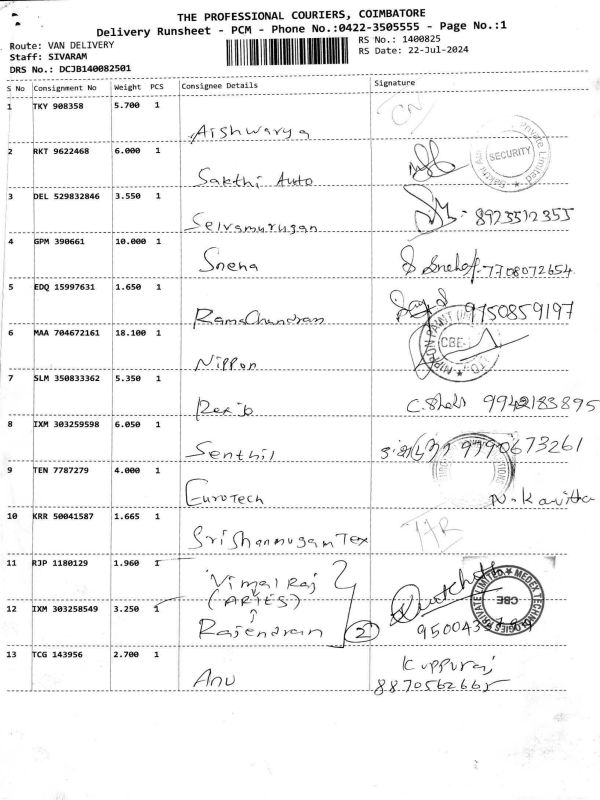 THE PROFESSIONAL COURIERS, COIMBATORE
Delivery Runsheet - PCM - Phone No.:0422-3505555 - Page No.:1
Route: VAN DELIVERY
Staff: SIVARAM
DRS No.: DCJB140082501
RS No.: 1400825
RS Date: 22-Jul-2024
S No Consignment No Weight PCS Consignee Details Signature
1 TKY 908358 5.700 1
Aishwarya
2 RKT 9622468 6.000 1
Sakthi Auto
SECURITY
Private Limited
3 DEL 529832846 3.550 1
Selvamurugan 8923512355
4 GPM 390661 10.000 1
Sneha Sneha-7708072654
5 EDQ 15997631 1.650 1
RamaChandran 9750859197
6 MAA 704672161 18.100 1
Nippon
NIPPON PAINT
CBE
7 SLM 350833362 5.350 1
9942183895
8 IXM 303259598 6.050 1
Senthil 9790673261
9 TEN 7787279 4.000 1
EuroTech N. Kavitha
10 KRR 50041587 1.665 1
Sri Shanmugam Tex
11 RJP 1180129 1.960 1
Vimal Raj
(ARIES)
12 IXM 303258549 3.250 1
Rajendran 2
MEDEX TECHNOLOGIES PRIVATE LIMITED
CBE
13 TCG 143956 2.700 1
Anu
Kuppuraj
8870562665